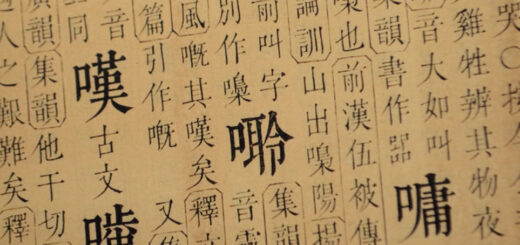 哭○按
雞牲辨其物夜
音大如叫
嘃
集韻書作
也前漢伍被傳
論訓山出嘄陽
前叫字
別作嘄
集韻
音
風嘅其嘆矣釋文
篇引作嘅 又
音
同
嘆古文
韻集韻他干切
人之艱難矣釋